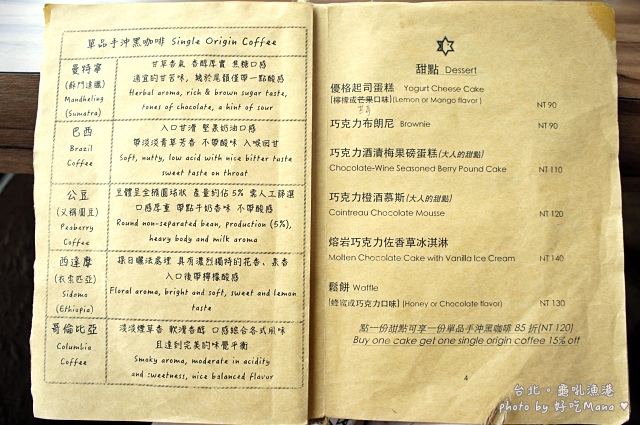 單品手沖黑咖啡 Single Origin Coffee
曼特寧
(蘇門達臘)
Mandheling
(Sumatra)
甘草香氣 香醇厚實 焦糖口感
適宜的甘苦味, 餘於尾韻僅帶一點酸感
Herbal aroma, rich & brown sugar taste,
tones of chocolate, a hint of sour
巴西
Brazil
Coffee
入口甘滑 堅果奶油口感
帶淡淡青草芳香 不帶酸味 入喉回甘
Soft, nutty, low acid with nice bitter taste
sweet taste on throat
公豆
(又稱圓豆)
Peaberry
Coffee
豆體呈全橢圓球狀 產量約佔 5% 需人工篩選
口感厚重 帶點牛奶香味 不帶酸感
Round non-separated bean, production (5%),
heavy body and milk aroma
西達摩
(衣索匹亞)
Sidamo
(Ethiopia)
採日曬法處理 具有濃烈獨特的花香、果香
入口後帶檸檬酸感
Floral aroma, bright and soft, sweet and lemon
taste
哥倫比亞
Columbia
Coffee
淡淡煙草香 軟滑香醇 口感綜合各式風味
且達到完美的味覺平衡
Smoky aroma, moderate in acidity
and sweetness, nice balanced flavour
甜點 Dessert
優格起司蛋糕 Yogurt Cheese Cake
(檸檬或芒果口味)(Lemon or Mango flavor) NT 90
巧克力布朗尼 Brownie NT 90
巧克力酒漬梅果磅蛋糕(大人的甜點)
Chocolate-Wine Seasoned Berry Pound Cake NT 110
巧克力橙酒慕斯(大人的甜點)
Cointreau Chocolate Mousse NT 120
熔岩巧克力佐香草冰淇淋
Molten Chocolate Cake with Vanilla Ice Cream NT 140
鬆餅 Waffle
(蜂蜜或巧克力口味) (Honey or Chocolate flavor) NT 130
點一份甜點可享一份單品手沖黑咖啡 85 折(NT 120)
Buy one cake get one single origin coffee 15% off
4
台北。垂吼漁港
photo by 好吃Mana ♥